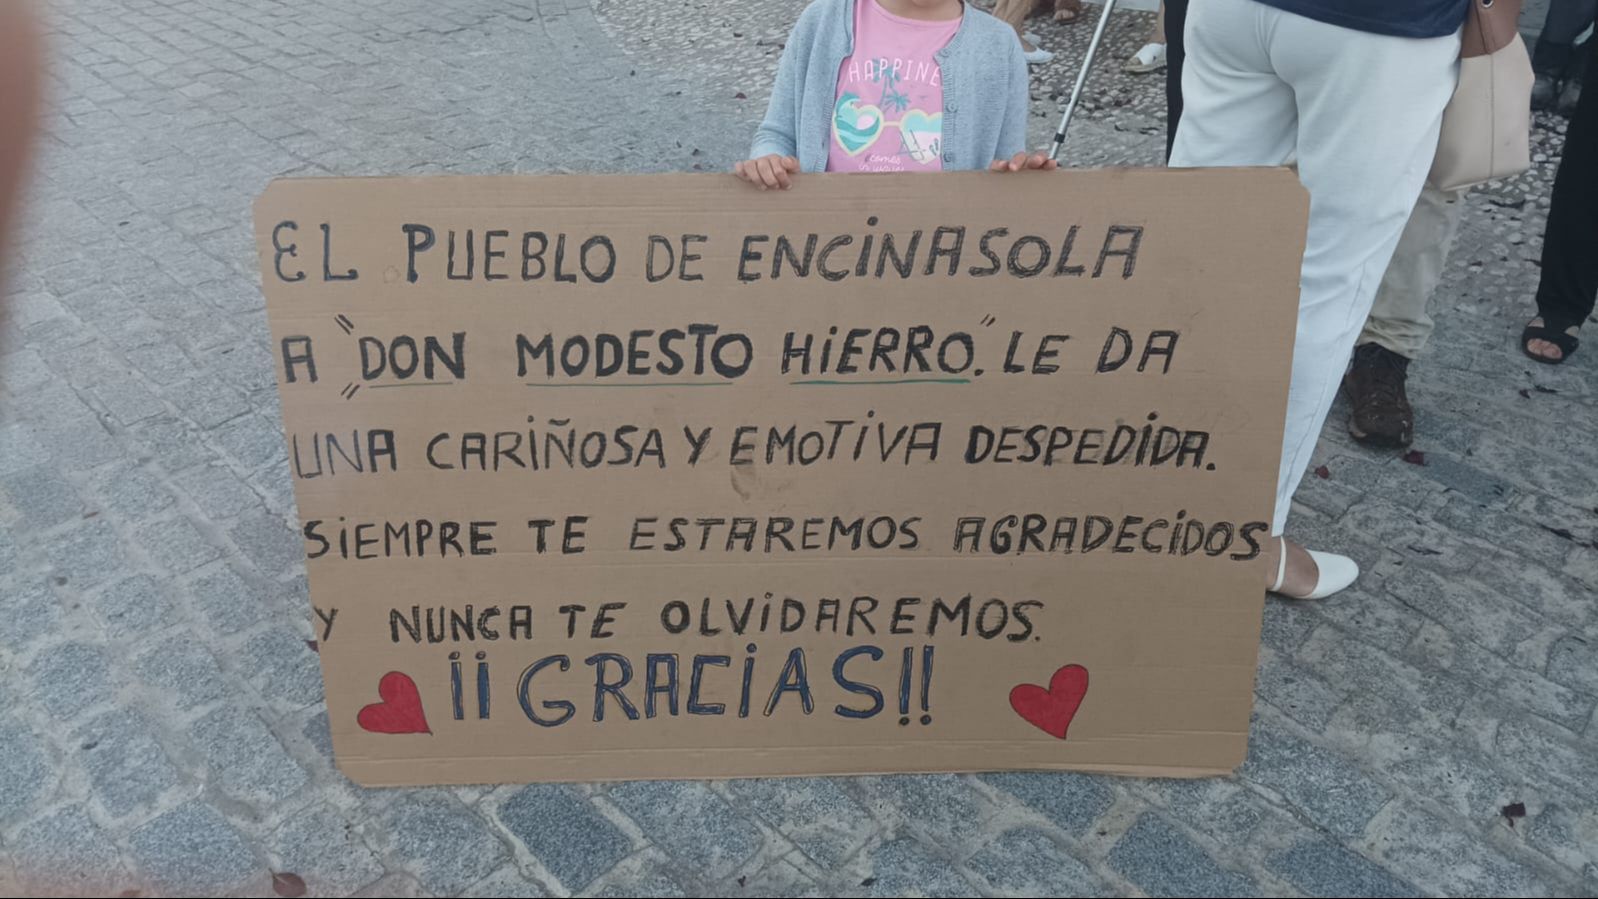 HAPPINE
comes
in waves
EL PUEBLO DE ENCINASOLA
A "DON MODESTO HIERRO". LE DA
UNA CARIÑOSA Y EMOTIVA DESPEDIDA.
SIEMPRE TE ESTAREMOS AGRADECIDOS
Y NUNCA TE OLVIDAREMOS.
¡¡GRACIAS!!